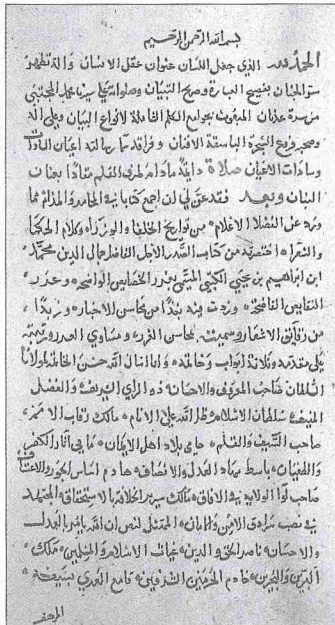 بسم الله الرحمن الرحيم
الحمد لله الذي جعل اللسان عنوان عقل الانسان وآلة تظهر
سر الجنان بفصيح العبارة وصريح التبيان وصلواته على سيدنا محمد المجتبى
من سرة عدنان المبعوث بجوامع الكلم الفاضلة لانواع البيان وعلى آله
وصحبه فروع الشجرة الباسقة الافنان وفراقد سما رسالته اعيان السادات
وسادات الاعيان صلاة دايمة مادام لطرف القلم مقادا بعنان
البنان وبعد فقد عن لي ان اجمع كتابا في المحامد والمذام مما
ورد عن الفضلا الاعلام من تواريخ الخلفا والوزراء وكلام الحكما
والشعراء اختصرته من كتاب الصدر الاجل الفاضل جمال الدين محمد
ابن ابراهيم بن يحيى الكتبي المسمى بغرر الخصايص الواضحة وعرر
النقايص الفاضحة وزدت فيه نبذا من محاسن الاخبار وزبدا
من رقايق الاشعار وسميته بمحاسن الغرر ومساوي العرر ورتبته
على مقدمة وثلاثة ابواب وخاتمة وانا اسال الله حسن الخاتمة لمولانا
السلطان صاحب المعروف والاحسان ذو الراي الشريف والفضل
المنيف سلطان الاسلام ظل الله على الانام مالك رقاب الامم
صاحب السيف والقلم حامي بلاد اهل الايمان ماحي آثار الكفر
والطغيان باسط مهاد العدل والانصاف هادم اساس الجور والاعتساف
صاحب لوا الولاية في الآفاق مالك سرير الخلافة بالاستحقاق المجتهد
في نصب سرادق الامن والامان الممتثل لنص ان الله يامر بالعدل
والاحسان ناصر الحق والدين غياث الاسلام والمسلمين ملك
البرين والبحرين خادم الحرمين الشرفين قامع العدى بسيفه
المرهف